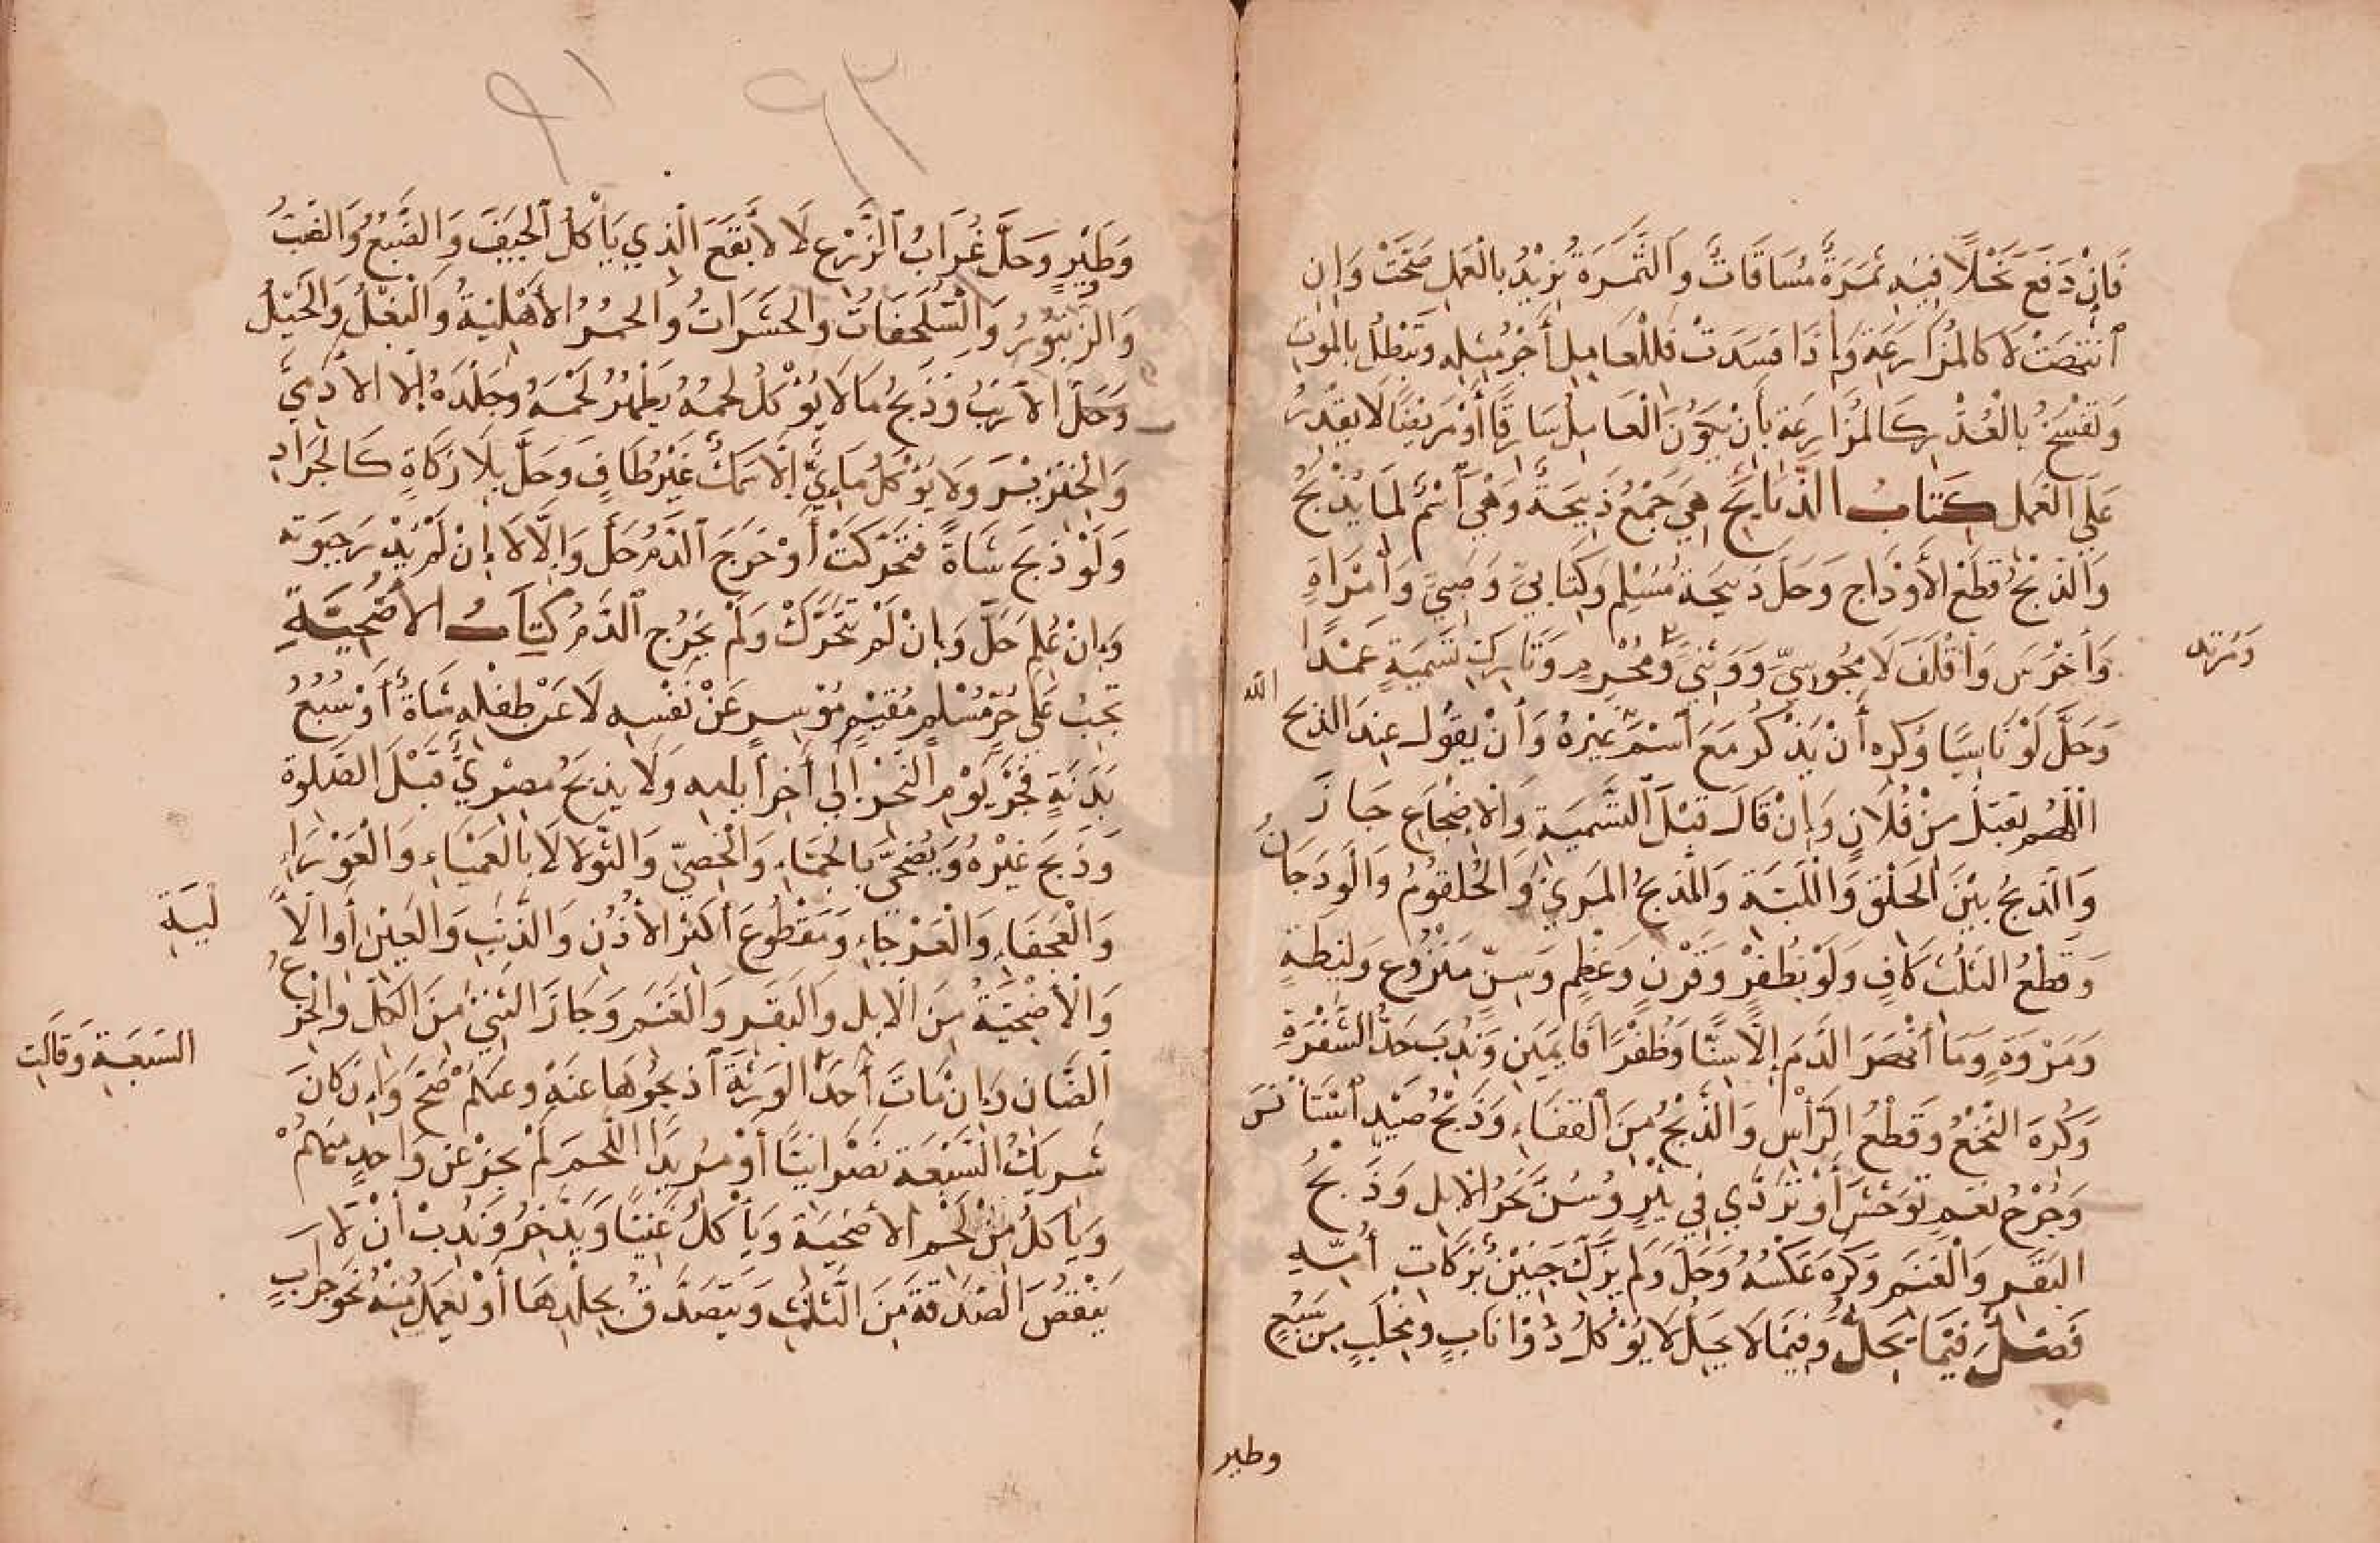 فَإِنْ دَفَعَ نَخْلًا فِيهِ ثَمَرَةٌ مُسَاقَاتً وَالثَّمَرَةُ يَزِيْدُ بِالْعَمَلِ صَحَّتْ وَإِنِ
ٱنْتَهَتْ لَا كَالْمُزَارَعَةِ وَإِذَا فَسَدَتْ فَلِلْعَامِلِ أَجْرُ مِثْلِهِ وَتَبْطُلُ بِالْمَوْتِ
وَتَفْسَخُ بِالْعُذْرِ كَالْمُزَارَعَةِ بِأَنْ يَكُوْنَ الْعَامِلُ سَارِقًا أَوْ مَرِيْضًا لَا يَقْدِرُ
عَلَى الْعَمَلِ كِتَابُ الذَّبَايِحِ هِيَ جَمْعُ ذَبِيحَةٍ وَهِيَ ٱسْمٌ لِمَا يُذْبَحُ
وَالذَّبْحُ قَطْعُ الأَوْدَاجِ وَحَلَّ ذَبِيْحَةُ مُسْلِمٍ وَكِتَابِيٍّ وَصَبِيٍّ وَٱمْرَاةٍ
وَأَخْرَسَ وَأَقْلَفَ لَا مَجُوسِيٍّ وَوَثَنِيٍّ وَمُحْرِمٍ وَتَارِكِ تَسْمِيَةٍ عَمْدًا
وَمُرْتَدٍ
وَحَلَّ لَوْ نَاسِيًا وَكُرِهَ أَنْ يَذْكُرَ مَعَ ٱسْمِ غَيْرَهُ وَأَنْ يَقُولَ عِندَ الذبح
الله
اللّٰهُمَّ تَقَبَّلْ مِنْ فُلَانٍ وَإِنْ قَالَ قَبْلَ التَّسْمِيَةِ وَالْاِضْجَاعِ جَازَ
وَالذَّبْحُ بَيْنَ الحَلْقِ وَاللَّبَّةِ وَالْمَذْبَحُ الْمَرِيُّ وَالْحُلْقُوْمُ وَالْوَدَجَانُ
وَقَطْعُ الثلُثِ كَافٍ وَلَوْ بِظُفْرٍ وَقَرْنٍ وَعَظْمٍ وَسِنٍّ مَنْزُوعٍ وَلِيطَةٍ
وَمَرْوَةٍ وَمَا أَنْهَرَ الدَّمَ إِلَّا سِنًّا وَظُفْرًا قَايِمَيْنِ وَنُدِبَ حَدُّ الشَّفْرَةِ
وَكُرِهَ النَّخْعُ وَقَطْعُ الرَّأْسِ وَالذَّبْحُ مِنَ ٱلْقَفَاءِ وَذَبْحُ صَيْدٍ ٱسْتَأْنَسَ
وَجُرْحُ نَعَمٍ تَوَحَّشَ أَوْ تَرَدَّي فِي بِئْرٍ وَسُنَّ نَحْرُ الْاِبِلِ وَذَبْحُ
البَقَرِ وَالْغَنَمِ وَكُرِهَ عَكْسُهُ وَحَلَّ وَلَمْ يُزَكَّ جَنِيْنٌ بِزَكَاتِ أُمِّهِ
فَصْلٌ فِيْمَا يَحِلُّ وَفِيْمَا لَا يَحِلُّ لَا يُؤْكَلُ ذُوْا نَابٍ وَمِخْلَبٍ مِنْ سَبُعٍ
وطير
٩١ ٩٢
وَطَيْرٍ وَحَلَّ غُرَابُ الزَّرْعِ لَا لْأَبْقَعَ الَّذِي يَأْكُلُ ٱلْجِيَفَ وَالضَّبُعُ وَالضَّبُّ
وَالزُّنْبُوْرُ وَالسُّلَحْفَاتُ وَالحَشَرَاتُ وَالحُمُرُ الأَهْلِيَّةُ وَالْبَغْلُ وَالْخَيْلُ
وَحَلَّ الأَرْنَبُ وَذَبْحُ مَا لَا يُؤْكَلُ لَحْمُهُ يُطَهِّرُ لَحْمَهُ وَجِلْدَهُ إِلَّا الْآدَمِيَّ
وَالْخِنْزِيْرَ وَلَا يُؤْكَلُ مَاءِيٌّ إِلَّا سَمَكٌ غَيْرُ طَافٍ وَحَلَّ بِلَا زَكَاةٍ كَالْجَرَادِ
وَلَوْ ذَبَحَ شَاةً فَتَحَرَّكَتْ أَوْ خَرَجَ ٱلدَّمُ حَلَّ وَإِلَّا لَا إِنْ لَمْ يَدْرِ حَيَوتَه
وَإِنْ عُلِمَ حَلَّ وَإِنْ لَمْ تَتَحَرَّكْ وَلَمْ يَخْرُجِ ٱلدَّمُ كِتَابُ الأُضْحِيَّةِ
تَجِبُ عَلَى حُرٍّ مُسْلِمٍ مُقِيْمٍ مُوْسِرٍ عَنْ نَفْسِهِ لَا عَنْ طِفْلِهِ شَاةٌ أَوْ سُبُعُ
بَدَنَةٍ فَجْرَ يَوْمِ النَّحْرِ إِلَى أَخِرِ أَيامِه وَلَا يَذْبَحُ مِصْرِيٌّ قَبْلَ الصَّلٰوةِ
وَذَبَحَ غَيْرُهُ وَيُضَحَّى بِالْجَمَّاءِ وَالْخَصِيِّ وَالثَّوْلَا لَا بِالْعَمْيَاءِ وَالْعَوْرَاءِ
وَالْعَجْفَاءِ وَالْعَرْجَاءِ وَمَقْطُوعِ أَكْثَرِ الأُذُنِ وَالذَّنَبِ وَالعَيْنِ أَوِ الْأَ
لْيَةِ
وَالْأُضْحِيَّةُ مِنَ الْاِبِلِ وَالْبَقَرِ وَالْغَنَمِ وَجَازَ الثَّنِيُّ مِنَ الْكُلِّ وَالْجَزَعُ
ٱلضَّانِ وَإِنْ مَاتَ أَحَدُ الوَرَثَةِ ٱذْبَحُوْهَا عَنْهُ وَعَنْكُمْ صَحَّ وَإِنْ كَانَ
السَّبْعَةِ وَقَالَتِ
شَرِيْكُ السَّبْعَةِ نَصْرَانِيًّا أَوْ مُرِيْدًا اللَّحْمَ لَمْ يَجُزْ عَنْ وَاحِدٍ مِنْهُمْ
وَيَأْكُلُ مِنْ لَحْمِ الْأُضْحِيَةِ وَيَأْكُلُ غَنِيًّا وَيَدَّخِرُ وَنُدِبَ أَنْ لَا
يَنْقُصَ الصَّدَقَةَ مِنَ الثُّلُثِ وَيَتَصَدَّقُ بِجِلْدِهَا أَوْ يَعْمَلُ مِنْهُ نَحْوَ جِرَابٍ